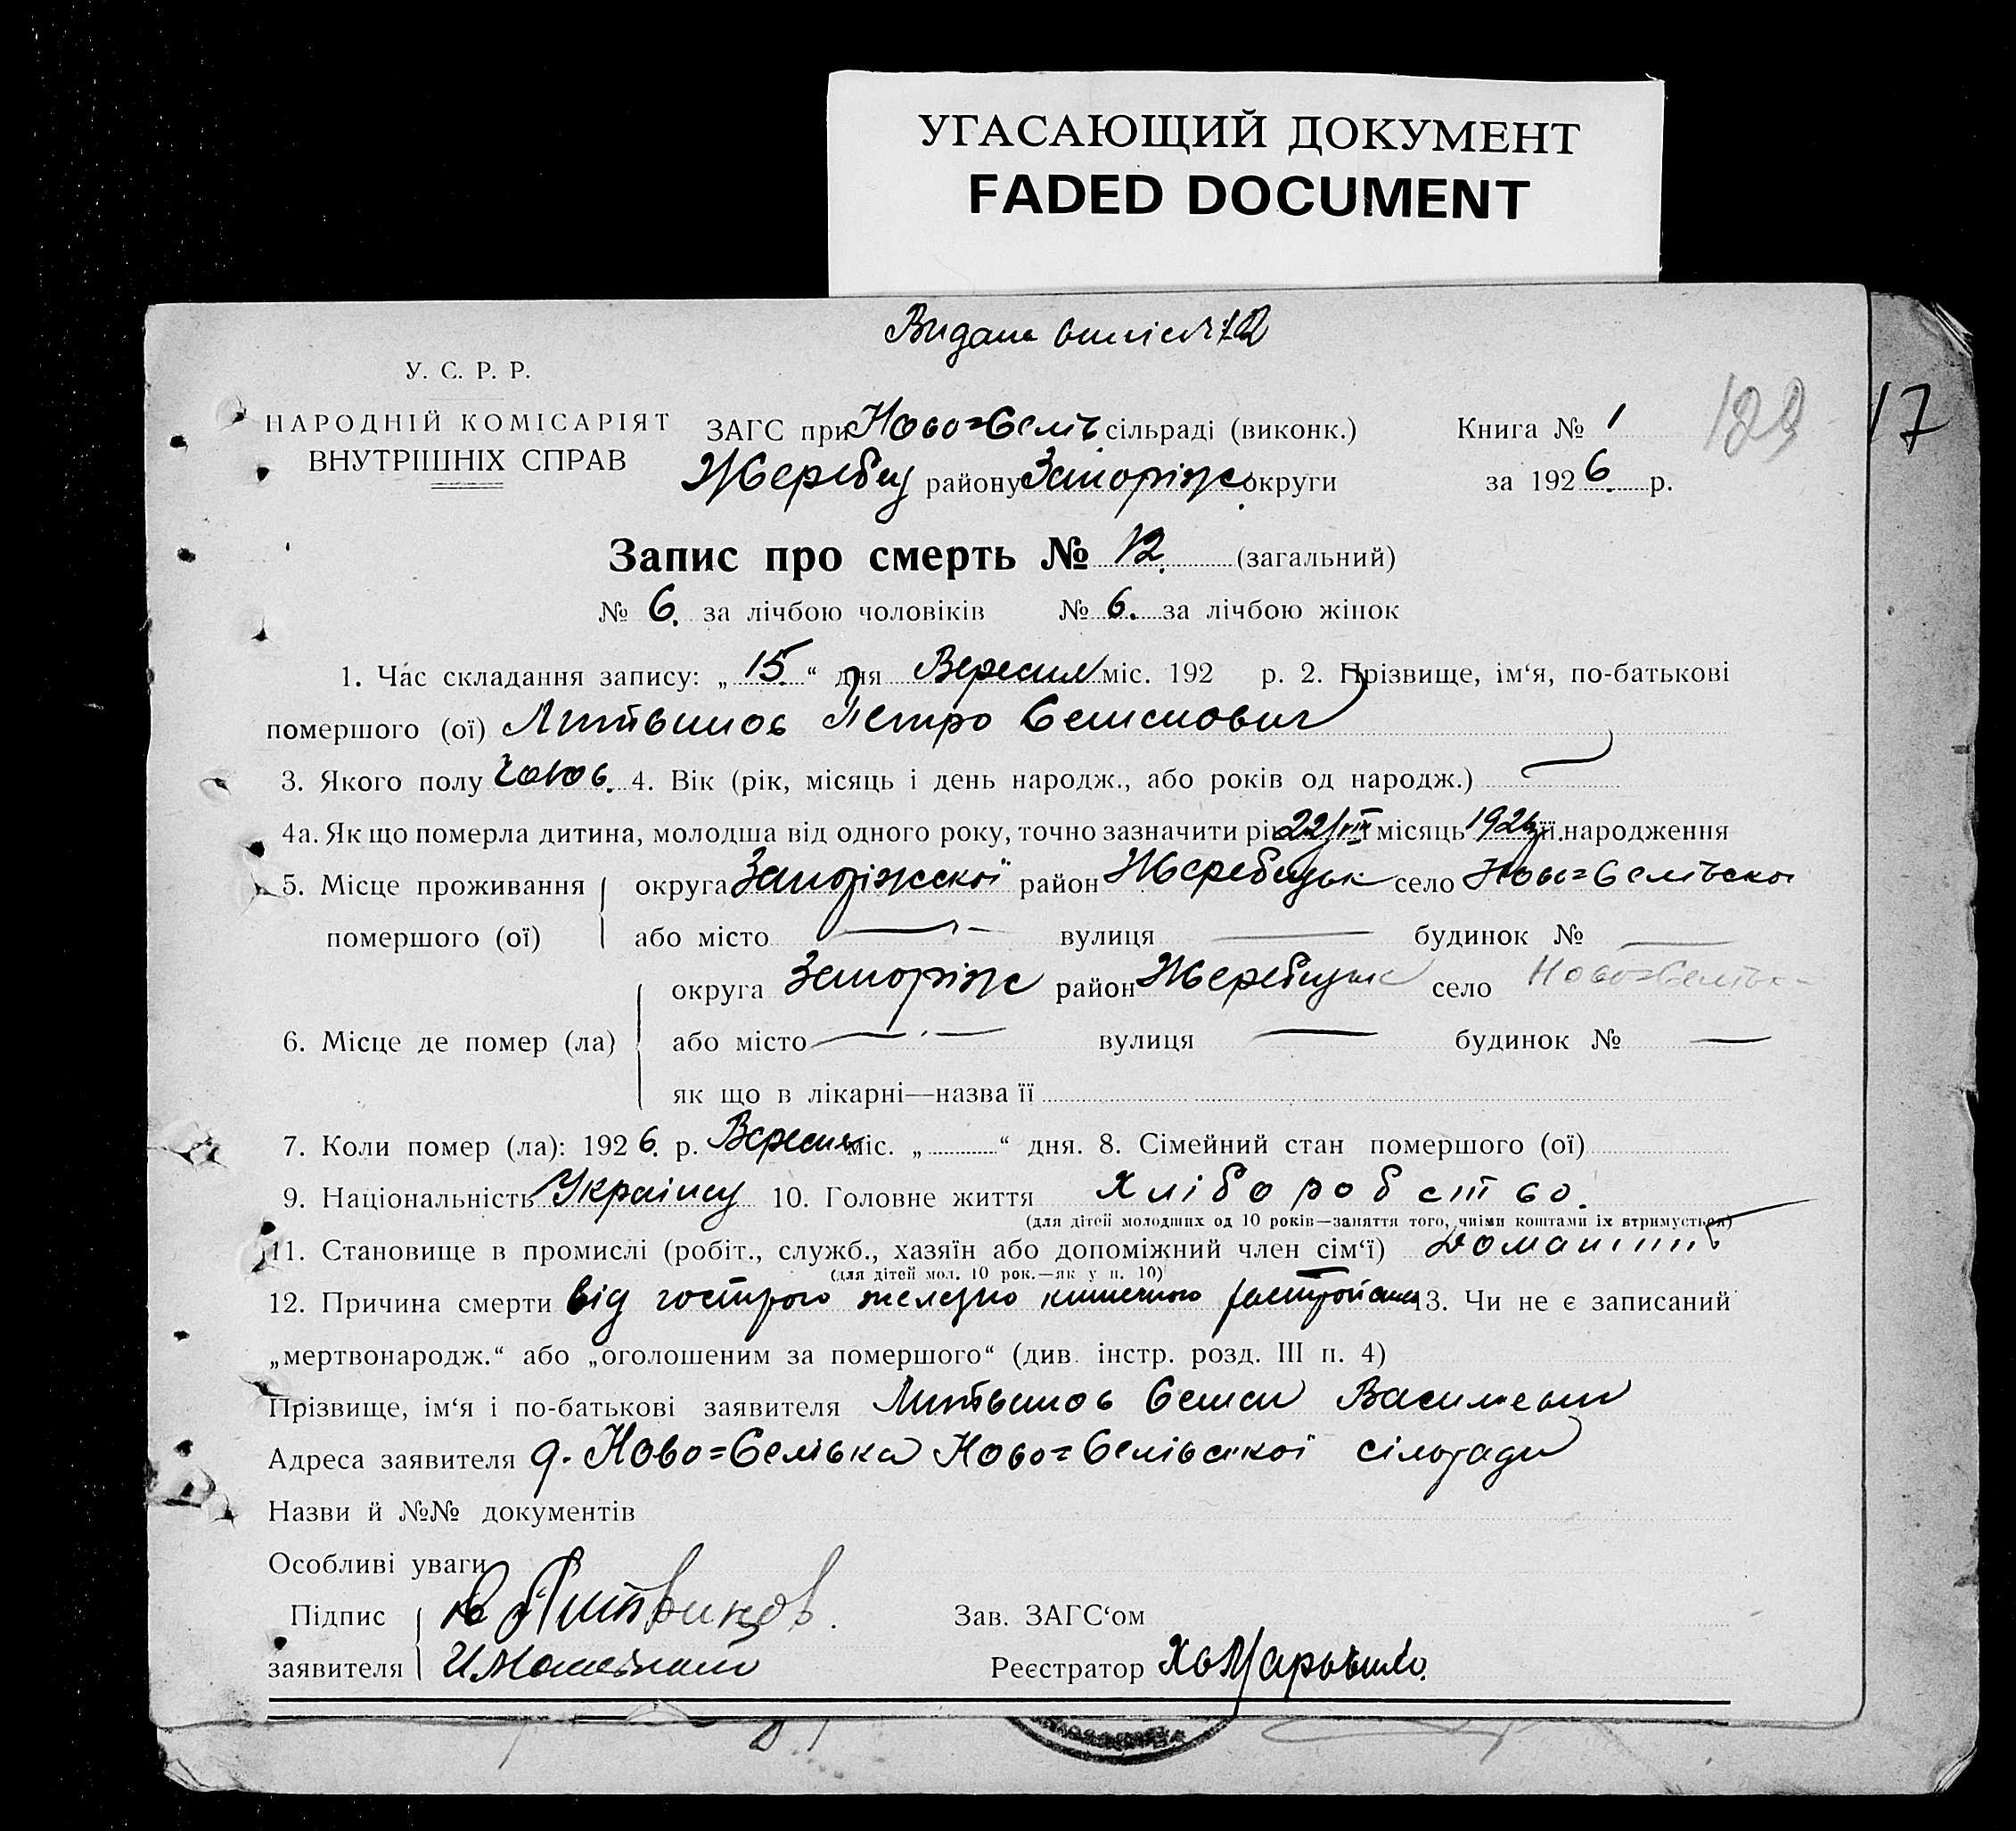 УГАСАЮЩИЙ ДОКУМЕНТ
FADED DOCUMENT
Видана
У. С. Р. Р.
НАРОДНІЙ КОМІСАРІЯТ
ВНУТРІШНІХ СПРАВ
ЗАГС при Ново=Селів сільраді (виконк.)
Жеребец району Запоріж. округи
Книга № 1
за 1926. р.
17
Запис про смерть № 12. (загальний)
№ 6. за лічбою чоловіків № 6. за лічбою жінок
1. Час складання запису: „15.“ дня Вересня міс. 192 р. 2. Прізвище, ім‘я, по-батькові
помершого (ої) Литвинов Петро Семенович
3. Якого полу чолов. 4. Вік (рік, місяць і день народж., або років од народж.)
4а. Як що померла дитина, молодша від одного року, точно зазначити рік 22/VIII місяць 1926 її народження
5. Місце проживання округа Запоріжскої район Жеребецьк село Ново=Селівскої
помершого (ої) або місто — вулиця — будинок № —
округа Запоріж район Жеребецьк село Ново=Селівс-
6. Місце де помер (ла) або місто — вулиця — будинок № —
як що в лікарні—назва її
7. Коли помер (ла): 1926. р. Вересня міс. „ “ дня. 8. Сімейний стан помершого (ої)
9. Національність Українец 10. Головне життя хліборобство.
(для дітей молодших од 10 років—заняття того, чиїми коштами їх втримується)
11. Становище в промислі (робіт., служб., хазяїн або допоміжний член сім‘ї) Домашній
(для дітей мол. 10 рок.—як у п. 10)
12. Причина смерти від гострого желудно кишечного растройства 13. Чи не є записаний
„мертвонародж.“ або „оголошеним за помершого“ (див. інстр. розд. III п. 4)
Прізвище, ім‘я і по-батькові заявителя Литвинов Семен Васильевич
Адреса заявителя д. Ново=Селівка Ново=Селівської сільради
Назви й №№ документів
Особливі уваги
Підпис Литвинов. Зав. ЗАГС‘ом
заявителя Реєстратор